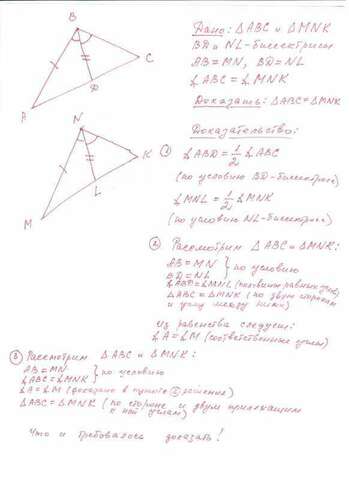 B
C
D
A
N
K
L
M
Дано: ΔABC и ΔMNK
BD и NL-биссектрисы
AB=MN, BD=NL
∠ABC=∠MNK
Доказать: ΔABC=ΔMNK
Доказательство:
① ∠ABD=1/2∠ABC
(по условию BD-биссектриса)
∠MNL=1/2∠MNK
(по условию NL-биссектриса)
② Рассмотрим ΔABC и ΔMNK:
AB=MN
BD=NL } по условию
∠ABD=∠MNL (половины равных углов)
ΔABC=ΔMNK (по двум сторонам
и углу между ними)
Из равенства следует:
∠A=∠M (соответственные углы)
③ Рассмотрим ΔABC и ΔMNK:
AB=MN
∠ABC=∠MNK } по условию
∠A=∠M (доказано в пункте ② решения)
ΔABC=ΔMNK (по стороне и двум прилежащим
к ней углам)
Что и требовалось доказать!